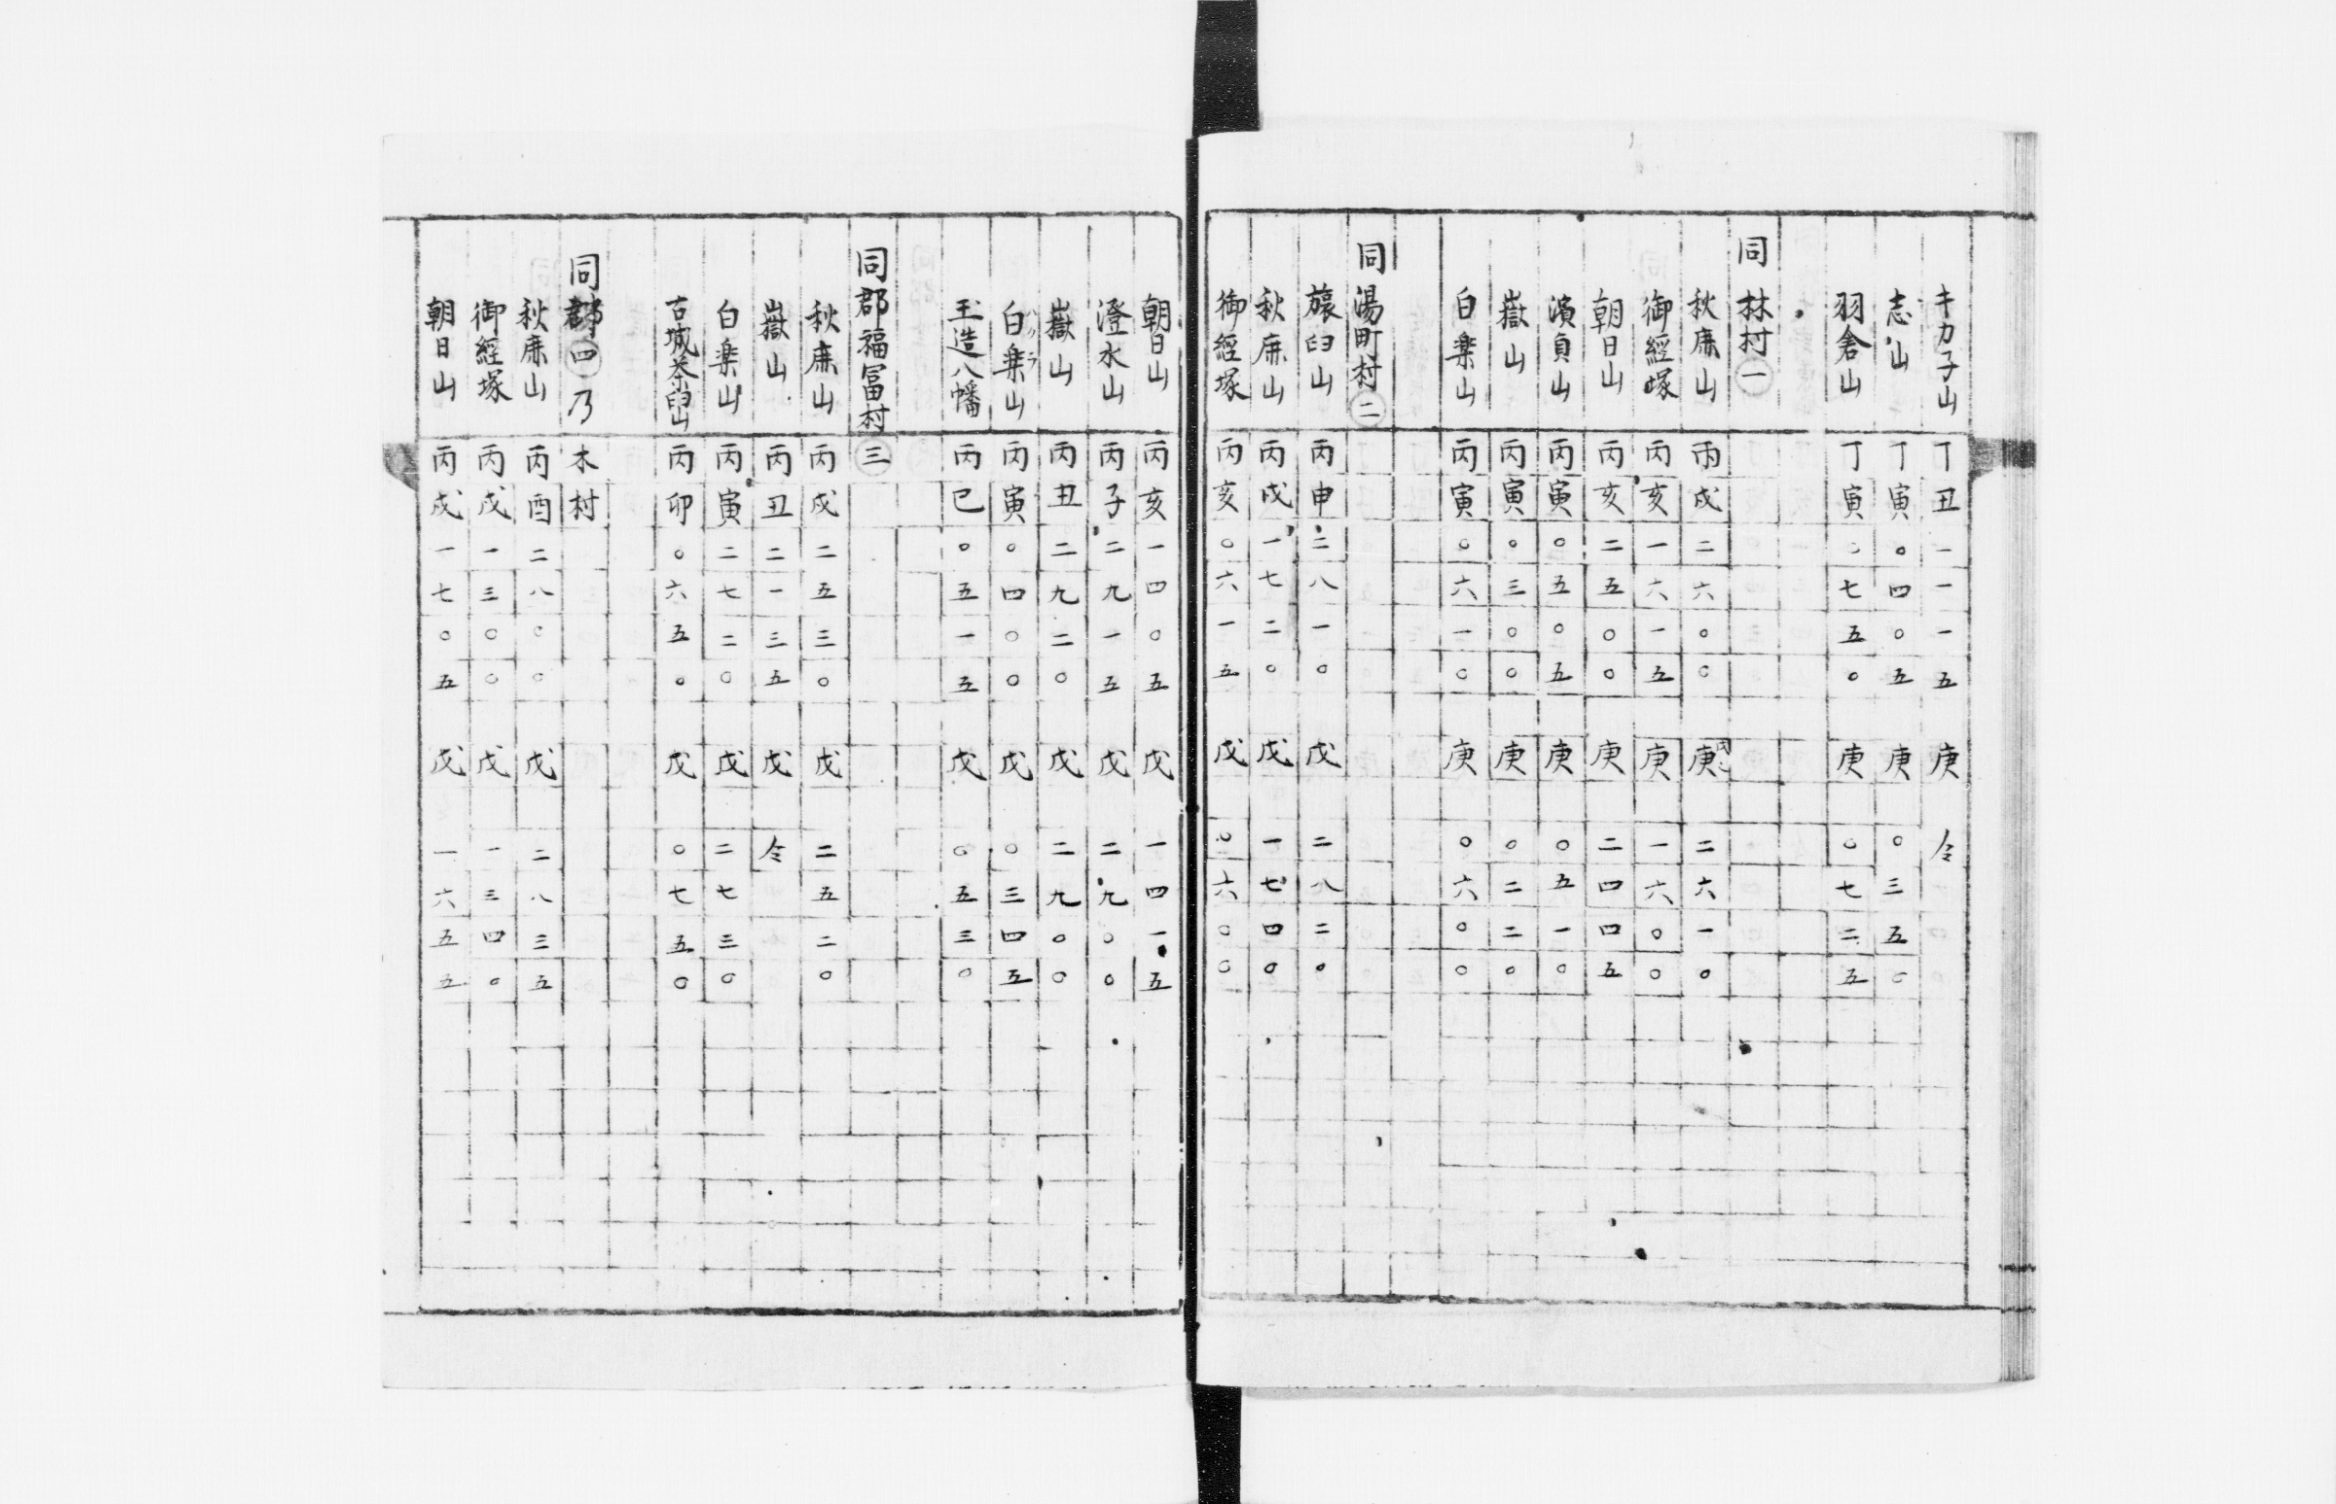 キカ子山 丁丑一一一五 庚 仝
志山 丁寅〇四〇五 庚 〇三五〇
羽倉山 丁寅〇七五〇 庚 〇七二五
同林村一
秋鹿山 丙戌二六〇〇 庚 二六一〇
御經塚 丙亥一六一五 庚 一六〇〇
朝日山 丙亥二五〇〇 庚 二四四五
濱貟山 丙寅〇五〇五 庚 〇五一〇
嶽山 丙寅〇三〇〇 庚 〇二二〇
白楽山 丙寅〇六一〇 庚 〇六〇〇
同湯町村二
旅臼山 丙申二八一〇 戊 二八二〇
秋鹿山 丙戌一七二〇 戊 一七四〇
御經塚 丙亥〇六一五 戊 〇六〇〇
朝日山 丙亥一四〇五 戊 一四一五
澄水山 丙子二九一五 戊 二九〇〇
嶽山 丙丑二九二〇 戊 二九〇〇
白楽山 丙寅〇四〇〇 戊 〇三四五
玉造八幡 丙巳〇五一五 戊 〇五三〇
同郡福冨村三
秋鹿山 丙戌二五三〇 戊 二五二〇
嶽山 丙丑二一三五 戊 仝
白楽山 丙寅二七二〇 戊 二七三〇
古城茶臼山 丙卯〇六五〇 戊 〇七五〇
同郡四乃木村
秋鹿山 丙酉二八〇〇 戊 二八三五
御經塚 丙戌一三〇〇 戊 一三四〇
朝日山 丙戌一七〇五 戊 一六五五